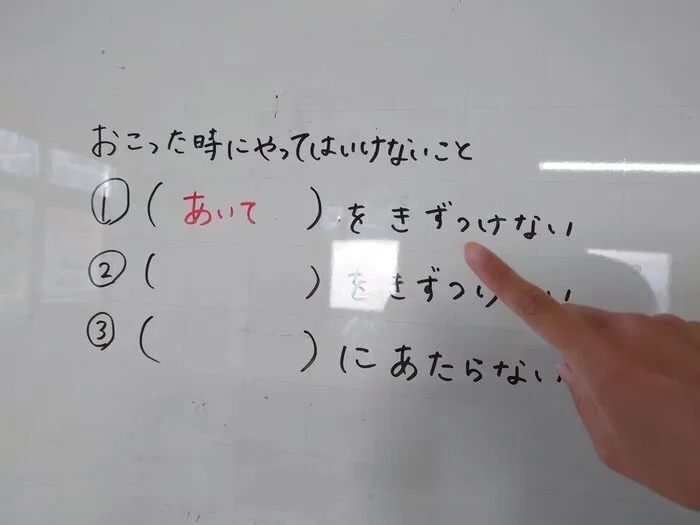 おこった時にやってはいけないこと
① ( あいて ) を きずつけない
② ( ) を きずつけ い
③ ( ) に あたらない